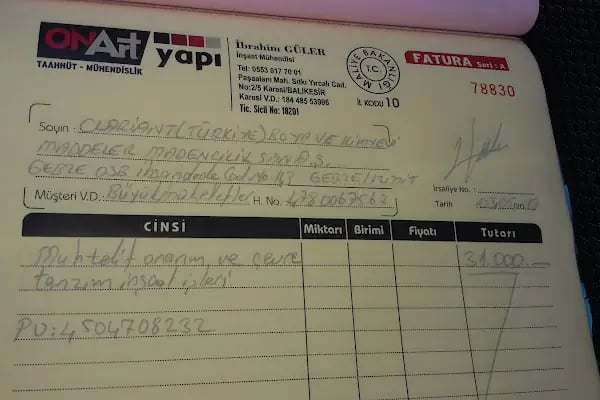 ONArt yapı
TAAHHÜT - MÜHENDİSLİK
İbrahim GÜLER
İnşaat Mühendisi
Tel: 0553 017 70 01
Paşaalanı Mah. Sıtkı Yırcalı Cad.
No:2/5 Karesi/BALIKESİR
Karesi V.D.: 184 485 53996
Tic. Sicil No: 18201
MALİYE BAKANLIĞI
T.C.
İL KODU 10
FATURA Seri: A
78830
Sayın: CLARIANT (TÜRKİYE) BOYA VE KİMYEVİ
MADDELER MADENCİLİK SAN A.Ş.
GEBZE OSB İhsandede Cad No:113 GEBZE/İZMİT
Müşteri V.D.: Büyükmükellefler H. No. 4780067562
İrsaliye No.:
Tarih
CİNSİ Miktarı Birimi Fiyatı Tutarı
Muhtelif onarım ve çevre 31.000.-
tanzim inşaat işleri
PO: 4504708232